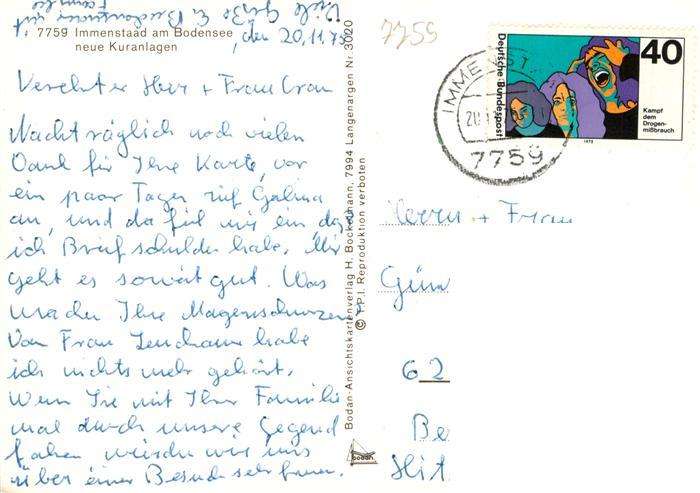 7759 Immenstaad am Bodensee
neue Kuranlagen
, den 20.11.75
Verehrter Herr + Frau
Nachträglich noch vielen
Dank für Ihre Karte, vor
ein paar Tagen rief Galina
an, und da fiel mir ein das
ich Briefschulden habe. Mir
geht es soweit gut. Was
machen Ihre Magenschmerzen
Von Frau habe
ich nichts mehr gehört.
Wenn Sie mit Ihrer Familie
mal durch unsere Gegend
fahren würden wir uns
über einen Besuch sehr freuen.
Viele Grüße E.
Familie
Bodan-Ansichtskartenverlag H. Bockelmann, 7994 Langenargen Nr. 3020
© T.P.I. Reproduktion verboten
bodan
7759
IMMENST
20.11.
7759
Deutsche Bundespost
40
Kampf
dem
Drogen-
mißbrauch
1975
Herrn + Frau
Gün
62
Be
Hit